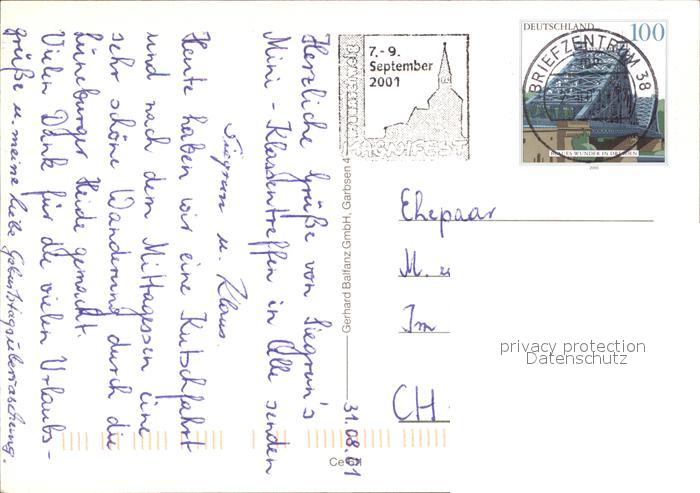 Herzliche Grüße von Siegrun's
Mini-Klassentreffen in Celle senden
Siegrun u. Klaus.
Heute haben wir eine Kutschfahrt
und nach dem Mittagessen eine
sehr schöne Wanderung durch die
Lüneburger Heide gemacht.
Vielen Dank für die vielen Urlaubs-
grüße u. meine liebe Geburtstagsüberraschung.
31.08.01
Gerhard Balfanz GmbH, Garbsen 4
7.-9.
September
2001
DEUTSCHLAND 100
BRIEFZENTRUM 38
BLAUES WUNDER IN DRESDEN
2000
Ehepaar
M.
Im
CH
privacy protection
Datenschutz